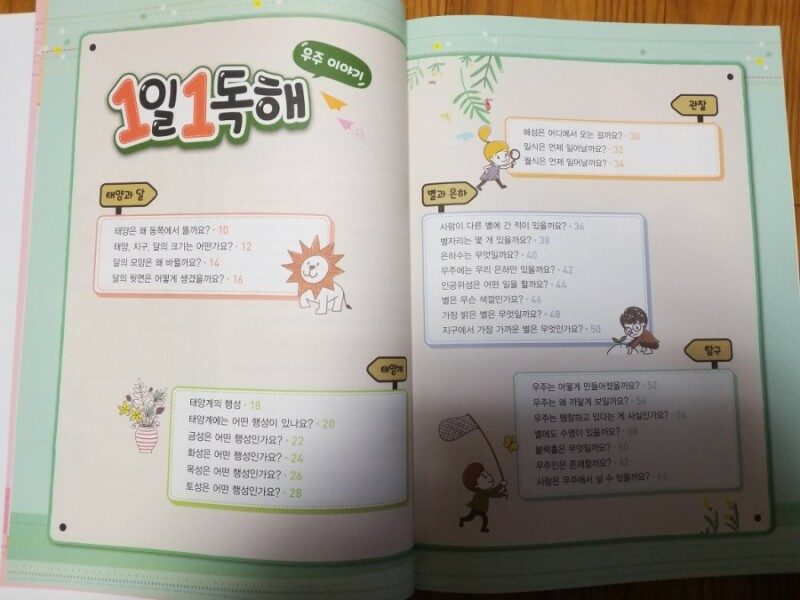 1일1독해
우주 이야기
태양과 달
태양은 왜 동쪽에서 뜰까요? · 10
태양, 지구, 달의 크기는 어떤가요? · 12
달의 모양은 왜 바뀔까요? · 14
달의 뒷면은 어떻게 생겼을까요? · 16
태양계
태양계의 행성 · 18
태양계에는 어떤 행성이 있나요? · 20
금성은 어떤 행성인가요? · 22
화성은 어떤 행성인가요? · 24
목성은 어떤 행성인가요? · 26
토성은 어떤 행성인가요? · 28
관찰
혜성은 어디에서 오는 걸까요? · 30
일식은 언제 일어날까요? · 32
월식은 언제 일어날까요? · 34
별과 은하
사람이 다른 별에 간 적이 있을까요? · 36
별자리는 몇 개 있을까요? · 38
은하수는 무엇일까요? · 40
우주에는 우리 은하만 있을까요? · 42
인공위성은 어떤 일을 할까요? · 44
별은 무슨 색깔인가요? · 46
가장 밝은 별은 무엇일까요? · 48
지구에서 가장 가까운 별은 무엇인가요? · 50
탐구
우주는 어떻게 만들어졌을까요? · 52
우주는 왜 까맣게 보일까요? · 54
우주는 팽창하고 있다는 게 사실인가요? · 56
별에도 수명이 있을까요? · 58
블랙홀은 무엇일까요? · 60
우주인은 존재할까요? · 62
사람은 우주에서 살 수 있을까요? · 64